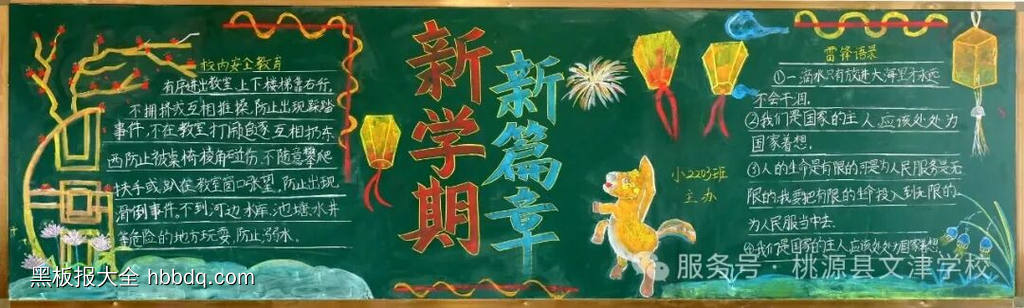 校内安全教育
有序进出教室,上下楼梯靠右行,
不拥挤或互相推搡,防止出现踩踏
事件,不在教室打闹追逐互相扔东
西防止被桌椅棱角碰伤,不随意攀爬
扶手或趴在教室窗口张望,防止出现
滑倒事件。不到河边水库,池塘,水井
等危险的地方玩耍,防止溺水。
新学期
新篇章
小2203班
主办
雷锋语录
①一滴水只有放进大海里才永远
不会干涸。
②我们是国家的主人,应该处处为
国家着想。
③人的生命是有限的,可是为人民服务是无
限的,我要把有限的生命投入到无限的
为人民服当中去。
④我们是国家的主人,应该处处为国家着想
黑板报大全 hbbdq.com
服务号·桃源县文津学校